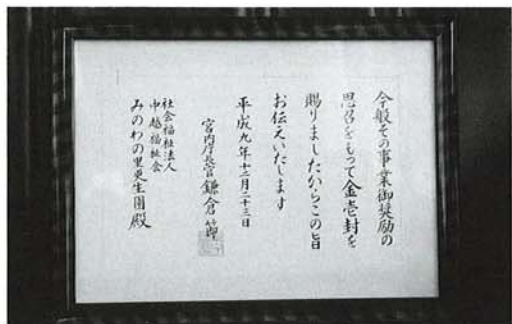 今般その事業御奨励の
思召をもって金壱封を
賜りましたからこの旨
お伝えいたします
平成九年十二月二十三日
宮内庁長官鎌倉節
社会福祉法人
中越福祉会
みのわの里更生園殿